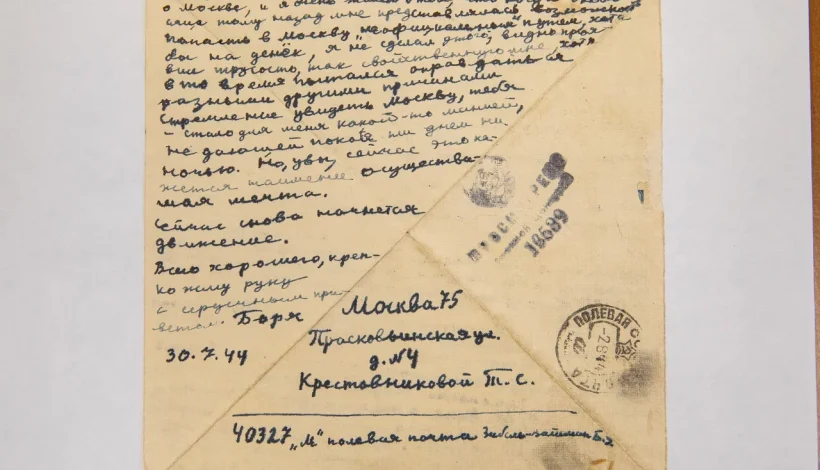 о Москве, и я очень
тому назад мне представлялась возможность
попасть в Москву "неофициальным" путём, хотя
бы на денёк, я не сделал этого, видно
трусость, так свойственную мне, хотя
в то время пытался оправдаться
разными другими причинами
Стремление увидеть Москву, тебя
– стало для меня какой-то манией,
не дающей покоя ни днем ни
ночью. Но, увы, сейчас это ка-
жется наименее осуществи-
мая мечта.
Сейчас снова начнется
движение.
Всего хорошего, креп-
ко жму руку
с сердечным при-
ветом. Боря
30.7.44
ПРОСМОТРЕНО
Военной
10589
Москва 75
Прасковьинская ул.
д. №4
Крестовниковой Т. С.
ПОЛЕВАЯ
-2 8 44
ПОЧТА
40327 "М" полевая почта